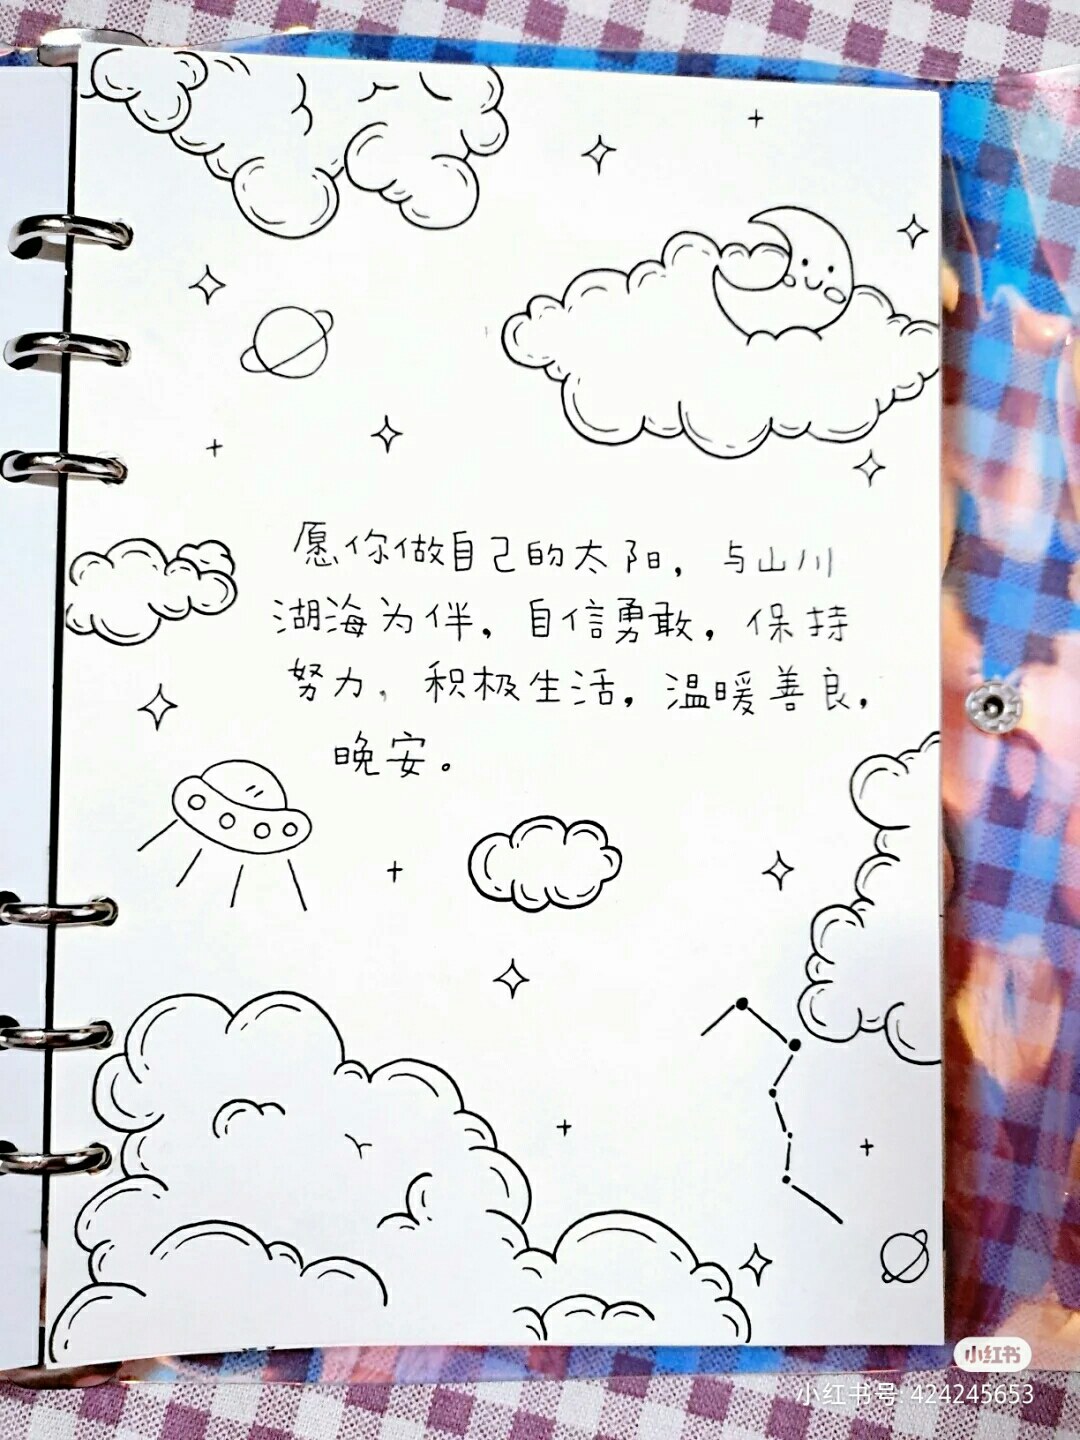 愿你做自己的太阳，与山川
湖海为伴，自信勇敢，保持
努力，积极生活，温暖善良，
晚安。
小红书
小红书号: 424245653